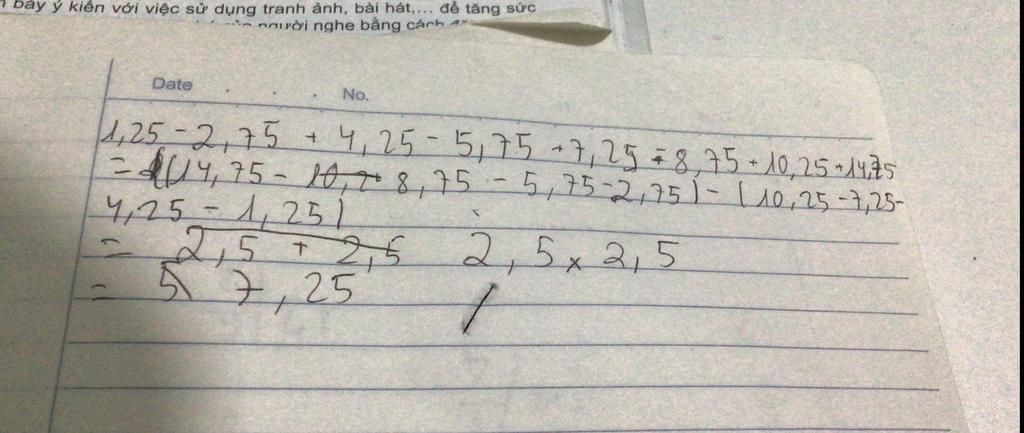 bày ý kiến với việc sử dụng tranh ảnh, bài hát,... để tăng sức
người nghe bằng cách
Date . . . No.
1,25 - 2,75 + 4,25 - 5,75 + 7,25 - 8,75 + 10,25 + 14,75
= ((14,75 - 10,2 8,75 - 5,75 - 2,75) - (10,25 - 7,25 -
4,25 - 1,25)
= 2,5 + 2,5 2,5 x 2,5
= 5 7,25